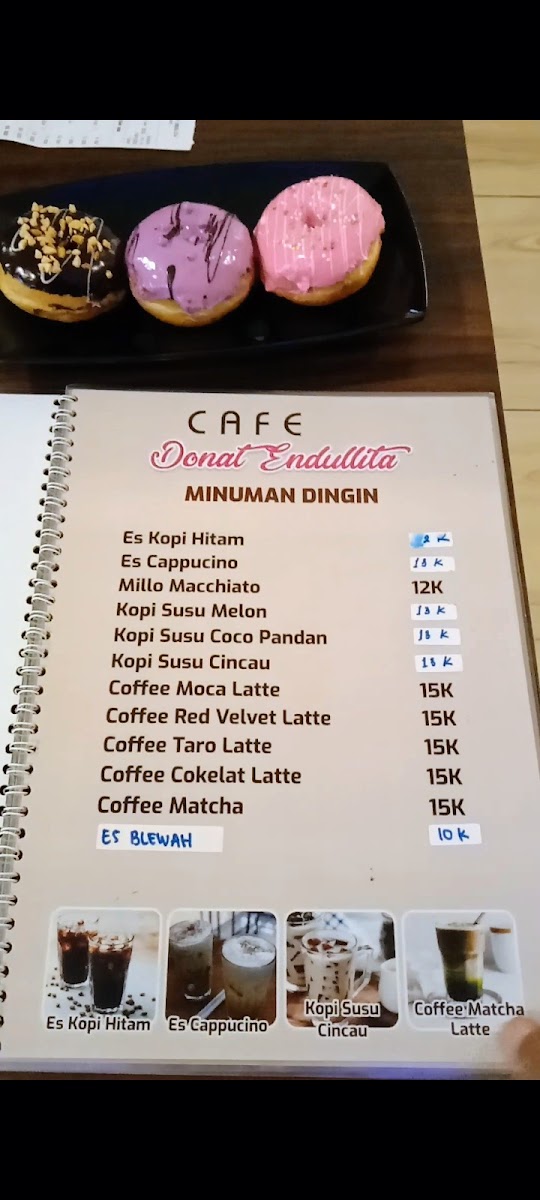 CAFE
Donat Endullita
MINUMAN DINGIN
Es Kopi Hitam
Es Cappucino 13 K
Millo Macchiato 12K
Kopi Susu Melon 13 K
Kopi Susu Coco Pandan 13 K
Kopi Susu Cincau 13 K
Coffee Moca Latte 15K
Coffee Red Velvet Latte 15K
Coffee Taro Latte 15K
Coffee Cokelat Latte 15K
Coffee Matcha 15K
ES BLEWAH 10 K
Es Kopi Hitam
Es Cappucino
Kopi Susu
Cincau
Coffee Matcha
Latte